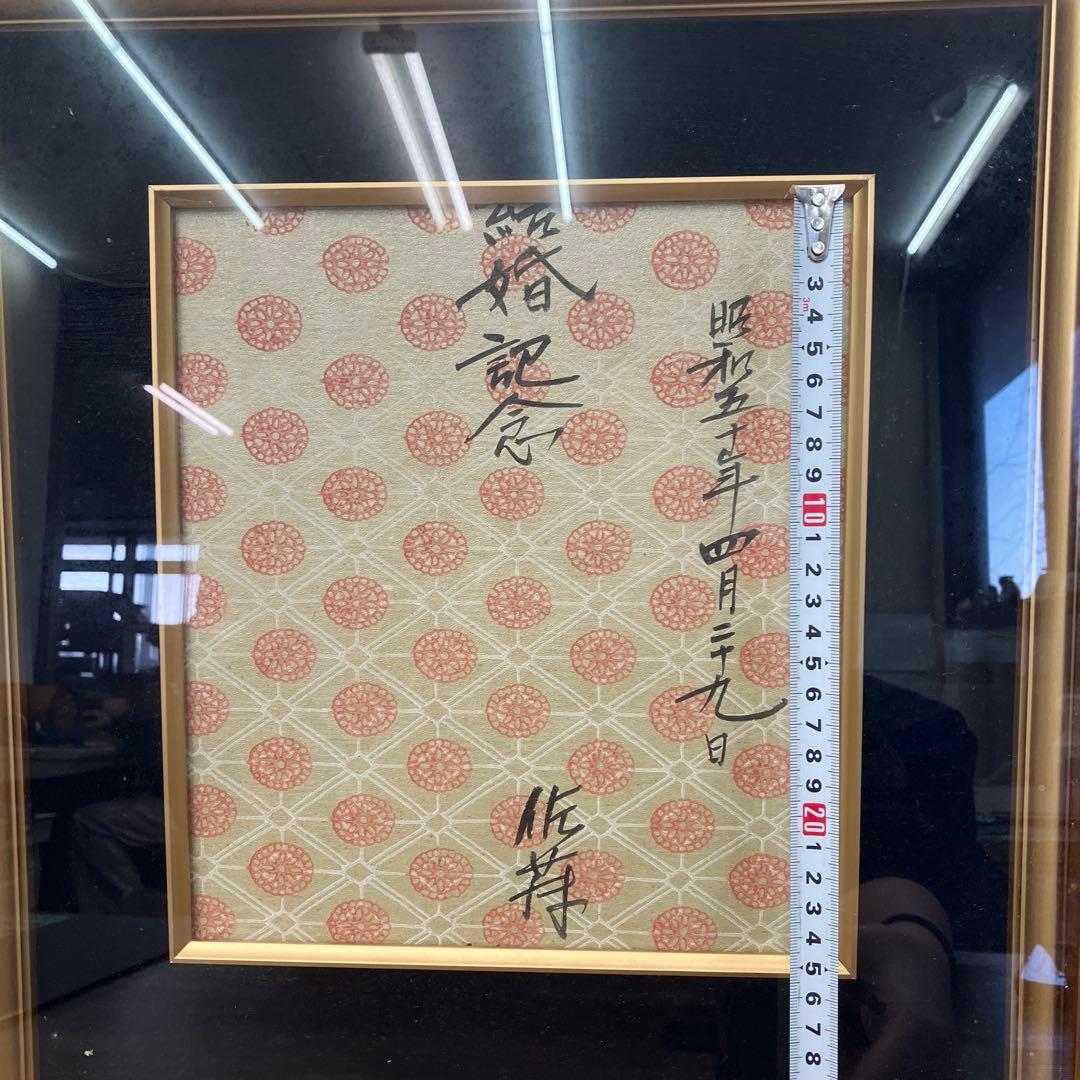 昭和五十年四月二十九日
結婚記念
3m
3
4
5
6
7
8
9
10
1
2
3
4
5
6
7
8
9
20
1
2
3
4
5
6
7
8